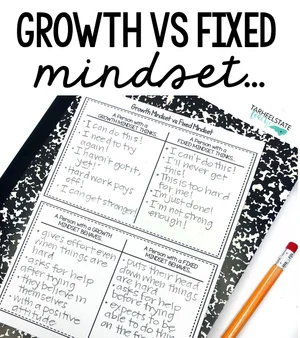 GROWTH VS FIXED
mindset...
TARHEELSTATE
Growth Mindset vs Fixed Mindset
A Person with a
GROWTH MINDSET THINKS...
• I can do this!
• I need to try
again!
• I haven't got it,
yet!
• Hard work pays
off!
• I can get stronger!
A Person with a
FIXED MINDSET THINKS...
• I can't do this!
• I'll never get
this!
• This is too hard
for me!
• I'm just done!
• I'm not strong
enough!
A Person with a GROWTH
MINDSET BEHAVES...
• gives effort even
when things are
hard
• asks for help
after trying
• they believe in
themselves
with a positive
attitude
A Person with a FIXED
MINDSET BEHAVES...
• puts their head
down when things
are hard
• asks for help
before trying
• expects to be
able to do thing
on the